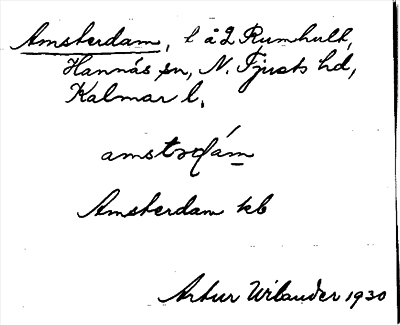 Amsterdam, l å 2 Rumhult,
Hannäs sn, N. Tjusts hd,
Kalmar l.
amstədám
Amsterdam kb
Artur Wilander 1930